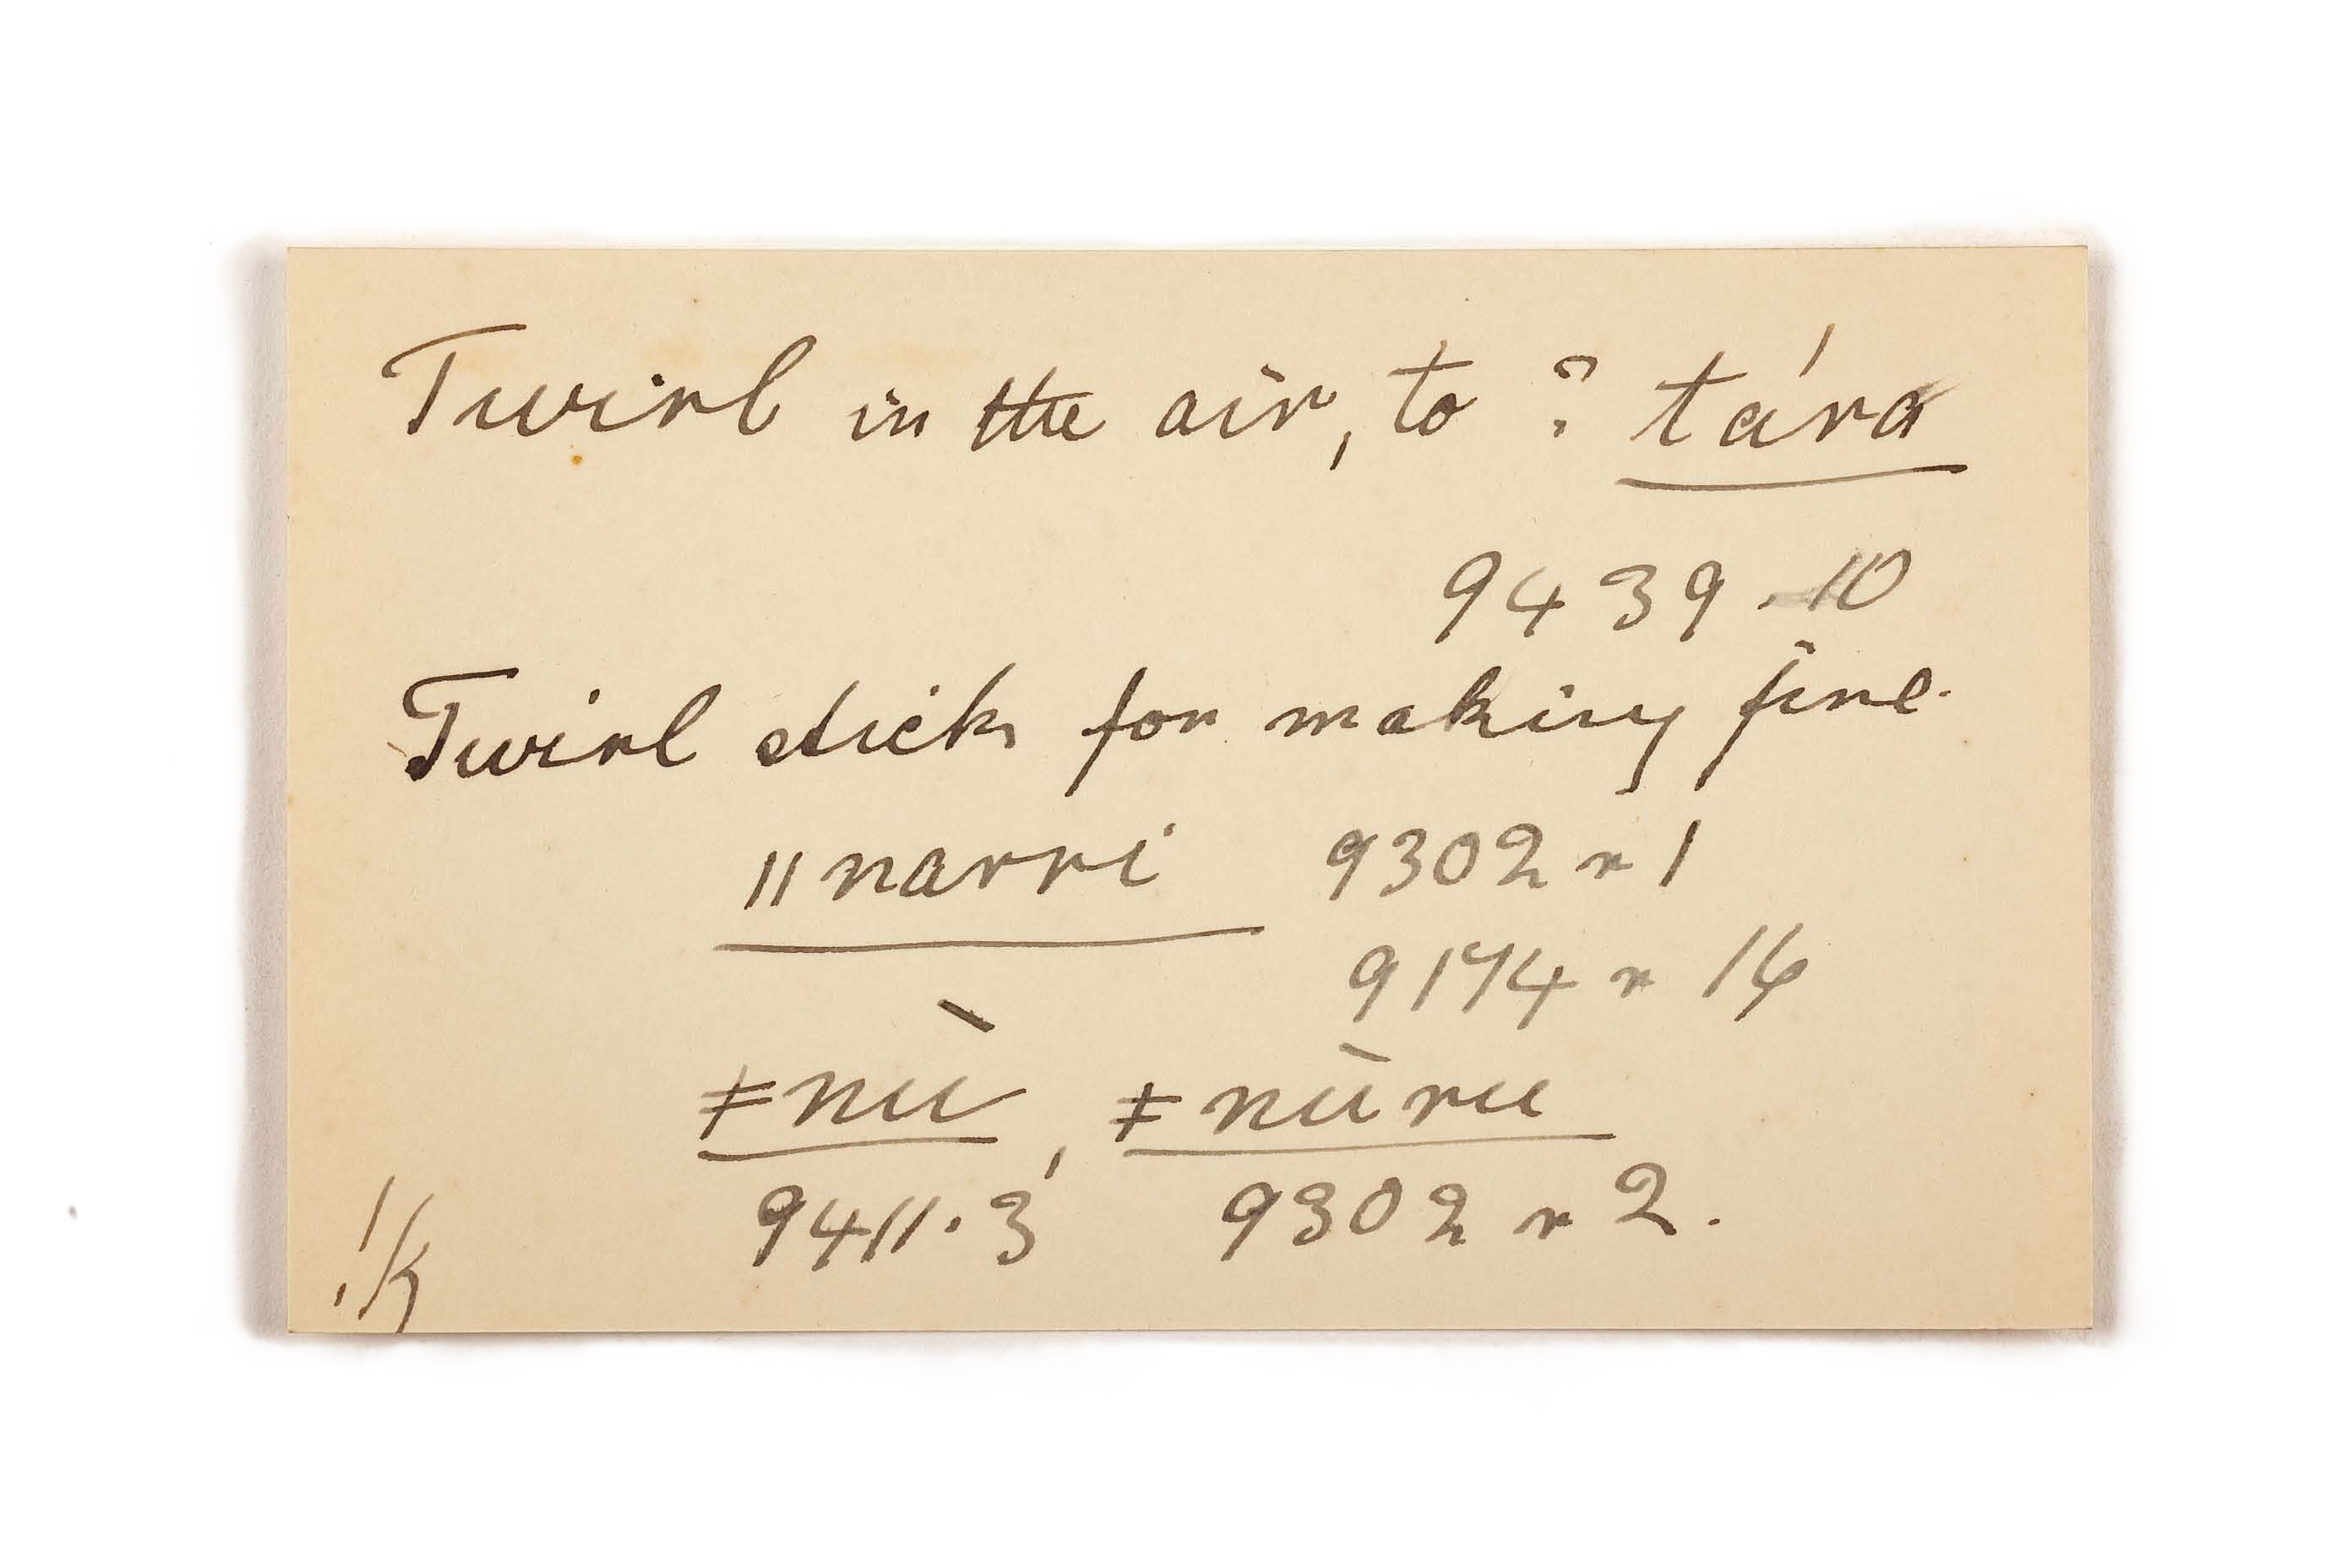 Twirl in the air, to ? tára
9439.10
Twirl sticks for making fire.
ǁnarri 9302 r 1
9174 r 16
ǂnù, ǂnùru
9411.3 9302 r 2.